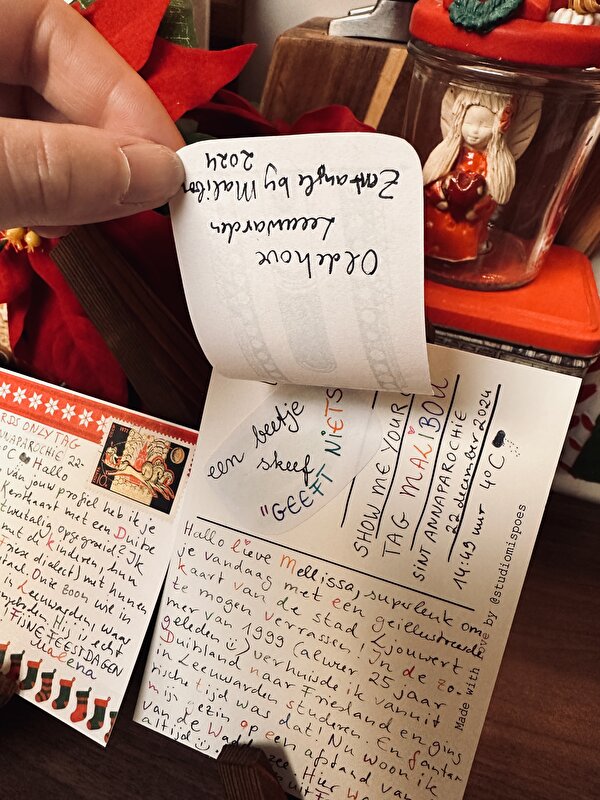 Oldehove
Leeuwarden
Zentangle by Malibou
2024
een beetje
skeef
"GEEFT NIETS
SHOW ME YOUR
TAG MALIBOU
SINT ANNAPAROCHIE
22 december 2024
14:49 uur 4°C
Hallo lieve Mellissa, superleuk om
je vandaag met een geïllustreerde
kaart van de stad Ljouwert
te mogen verrassen! In de zo-
mer van 1999 (alweer 25 jaar
geleden) verhuisde ik vanuit
Duitsland naar Friesland en ging
in Leeuwarden studeren. En fantas
tische tijd was dat! Nu woon ik
mijn gezin op een afstand van
van de Waddenzee. Hier
altijd
Made with love by @studiomispoes
ONLY TAG
ANNAPAROCHIE 22-
°C Hallo
van jouw profiel heb ik je
Kerstkaart met een Duitse
tweetalig opgegroeid? Ik
met de kinderen, hun
Friese dialect) met hunnen
taal. Onze zoon wie in
in Leeuwarden, waar
Hij is echt
FIJNE FEESTDAGEN
Malena